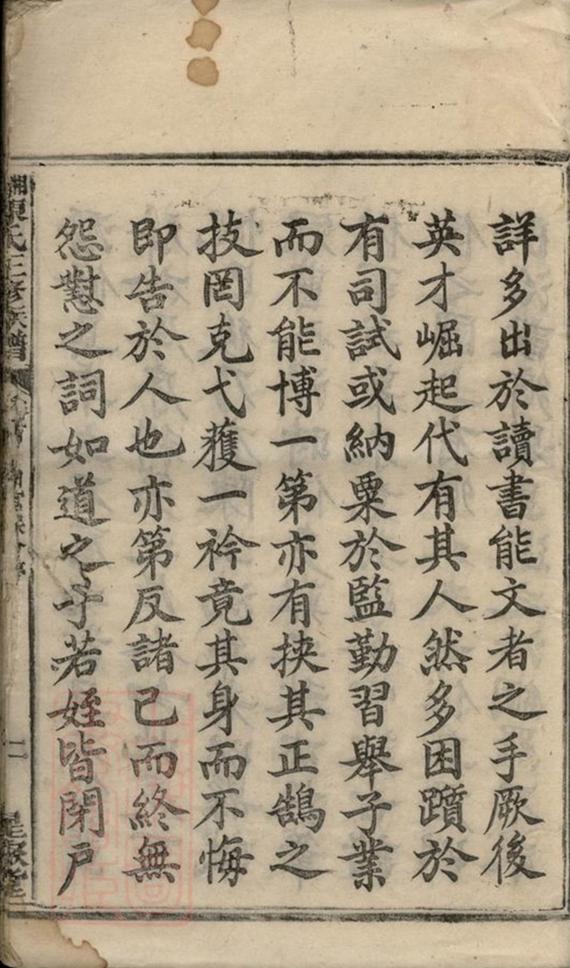 詳多出於讀書能文者之手厥後
英才崛起代有其人然多困躓於
有司試或納粟於監勤習舉子業
而不能博一第亦有挾其正鵠之
技罔克弋獲一衿竟其身而不悔
即告於人也亦第反諸己而終無
怨懟之詞如道之子若姪皆閉戶
氏三修族譜
二